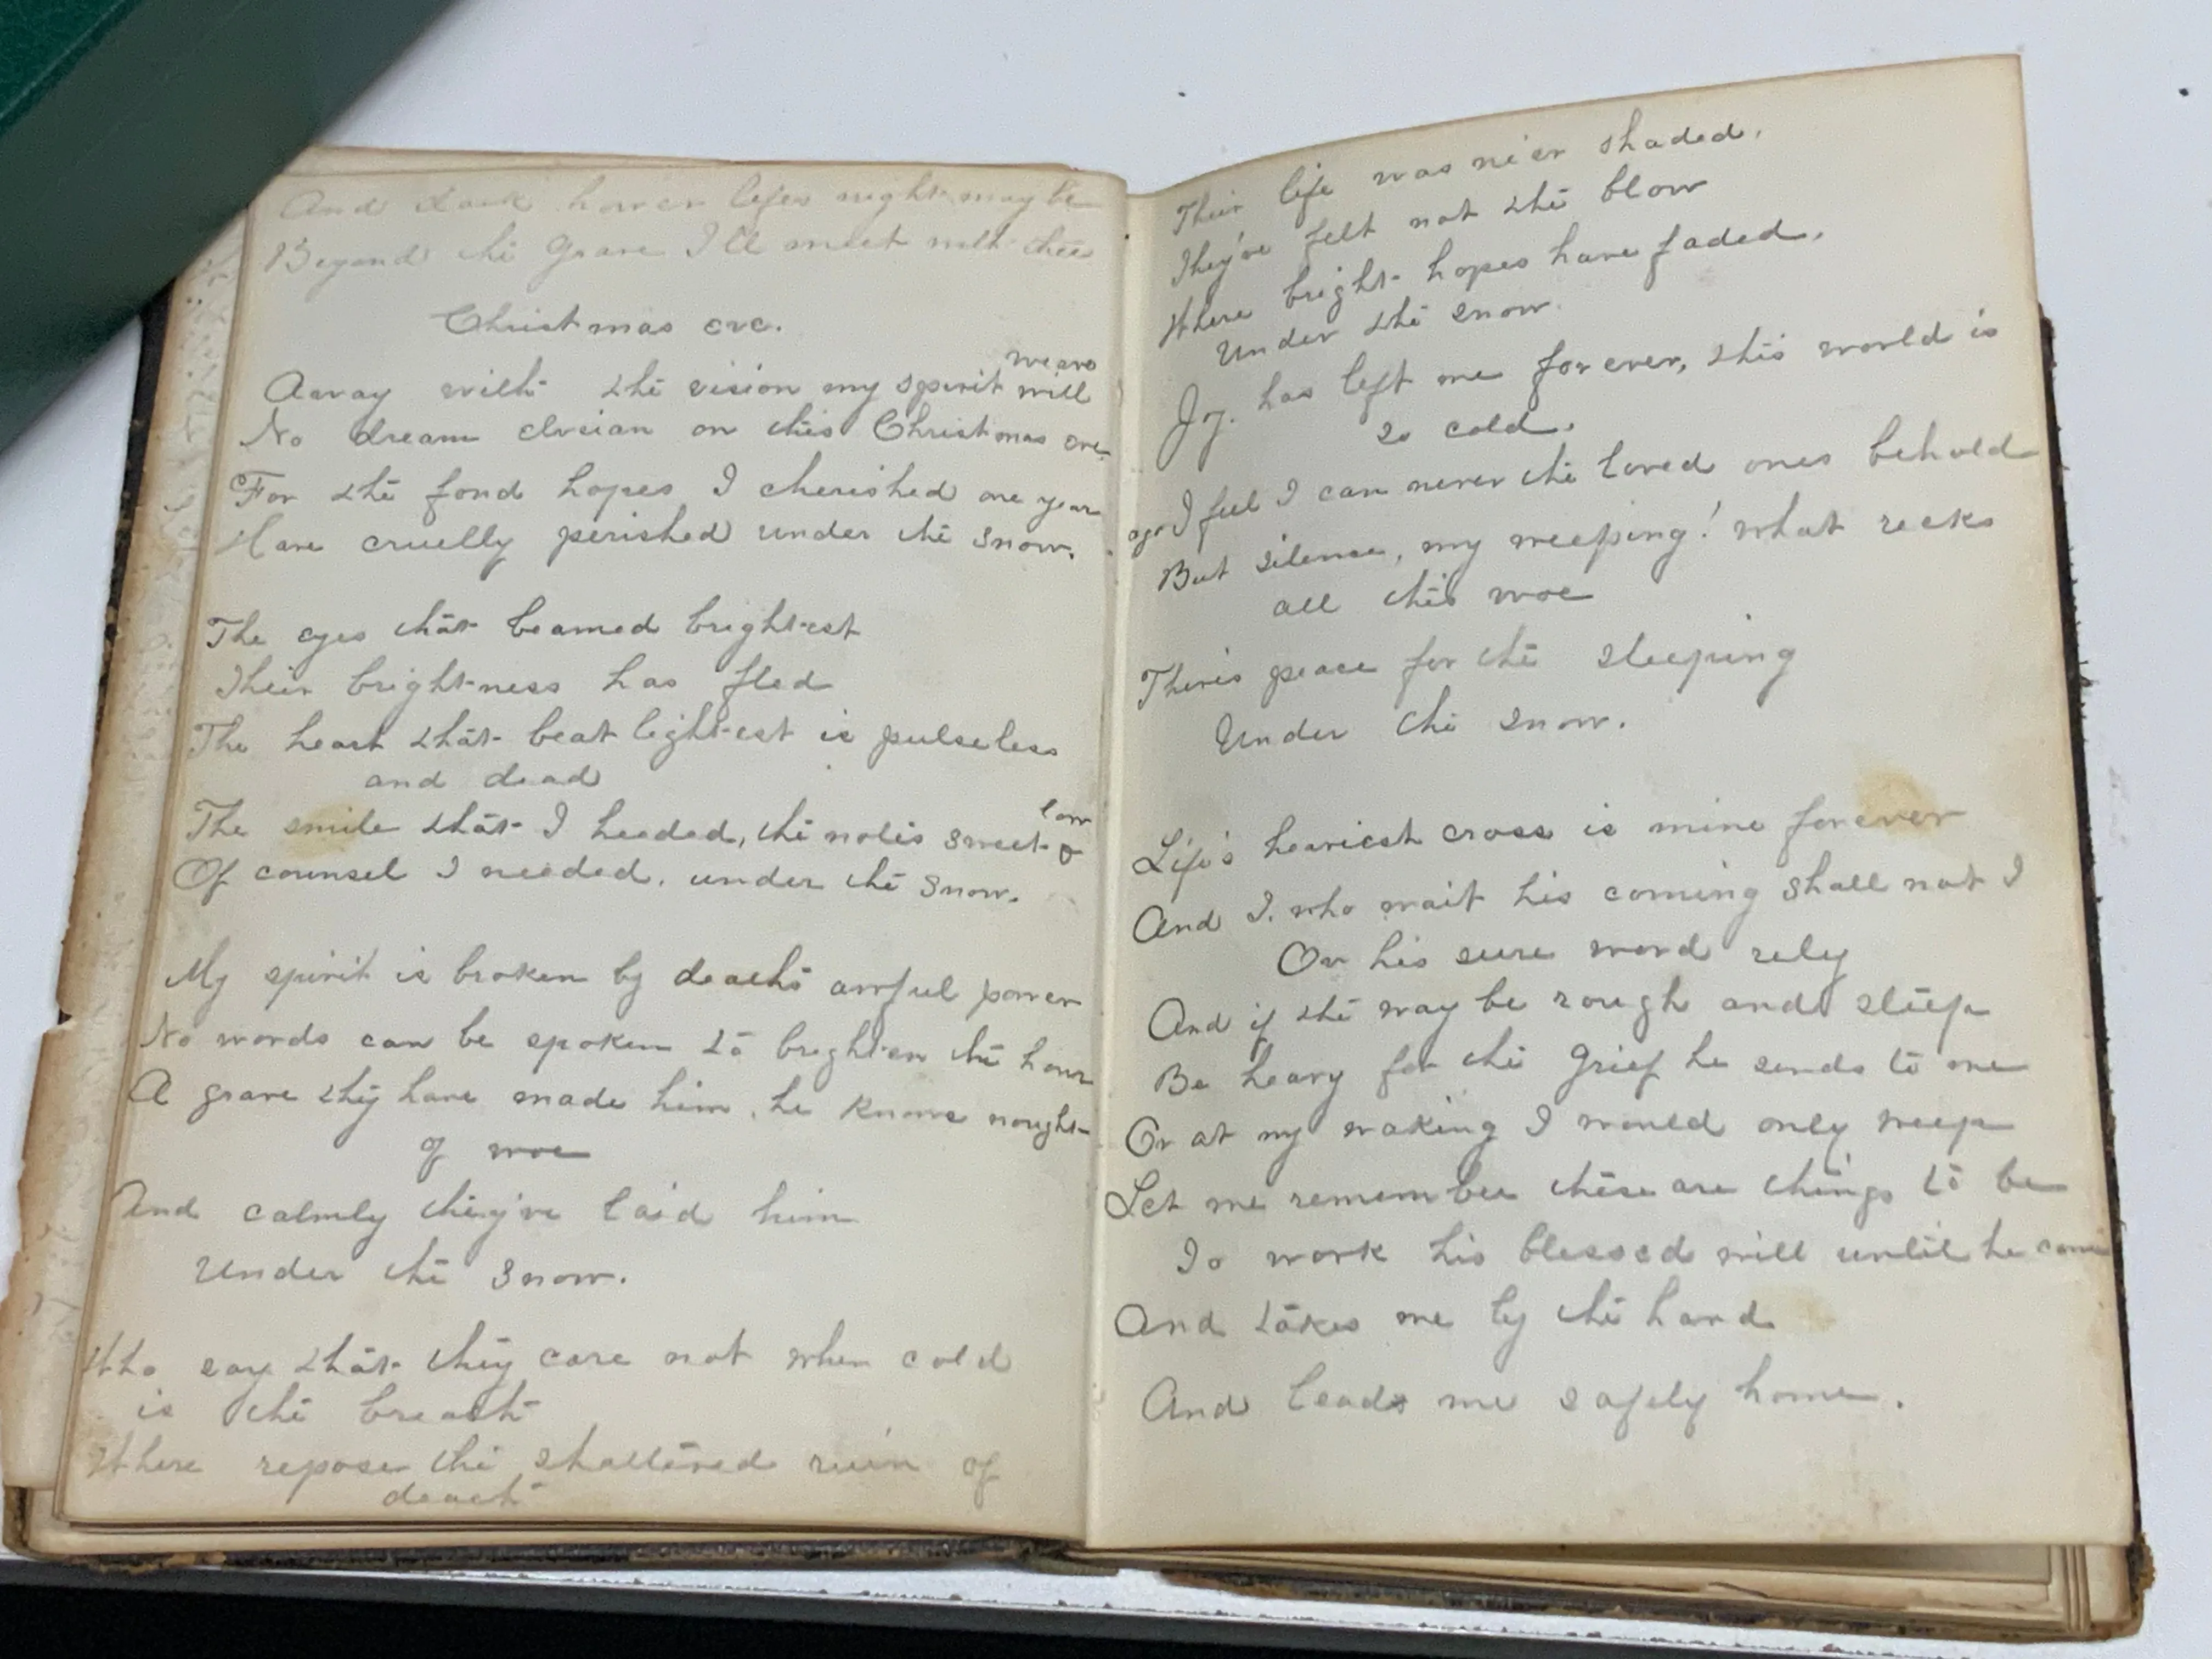 And dark however lifes night may be
Beyond the Grave I'll meet with thee
Christmas eve.
Away with the vision my spirit will weave
No dream elysian on this Christmas eve
For the fond hopes I cherished one year ago
Have cruelly perished under the snow.
The eyes that beamed brightest
Their brightness has fled
The heart that beat lightest is pulseless
and dead
The smile that I heeded, the notes sweet & low
Of counsel I needed. under the snow.
My spirit is broken by deaths awful power
No words can be spoken to brighten the hour
A grave they have made him. he knows nought
of woe
And calmly they've laid him
Under the snow.
Who say that they care not when cold
is the breath
Where repose the shattered ruin of
death
Their life was ne'er shaded.
They've felt not the blow
Where bright hopes have faded.
Under the snow.
Joy. has left me forever, this world is
so cold.
I feel I can never the loved ones behold
But silence, my weeping! what recks
all this woe
There's peace for the sleeping
Under the snow.
Life's heaviest cross is mine forever
And I. who wait his coming shall not I
On his sure word rely
And if the way be rough and steep
Be heavy for the Grief he sends to me
Or at my waking I would only weep
Let me remember these are things to be
To work his blessed will until he come
And takes me by the hand
And leads me safely home.